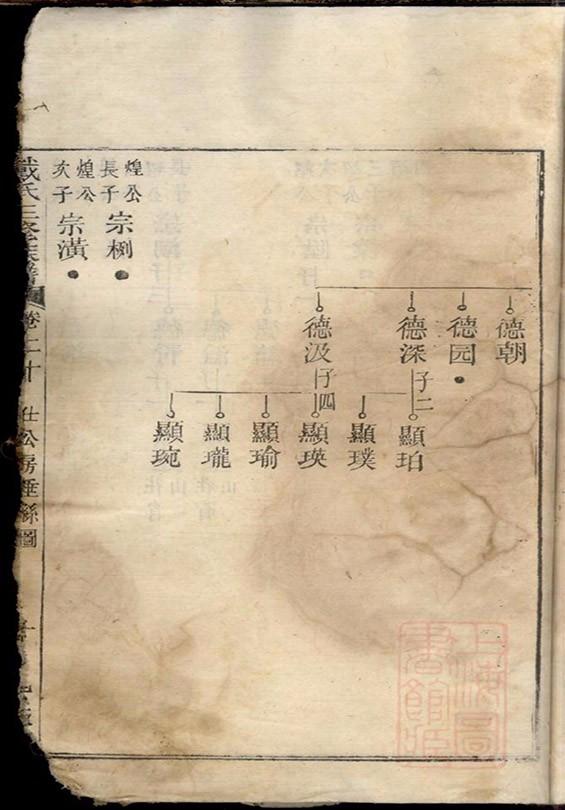 德朝
德园
德深
子二
德汲
子四
顯珀
顯璞
顯瑛
顯瑜
顯瓏
顯琬
煌公
長子
宗栵
煌公
次子
宗潢
戴氏三修族譜
卷二十
仕公房垂絲圖
上海圖書館藏